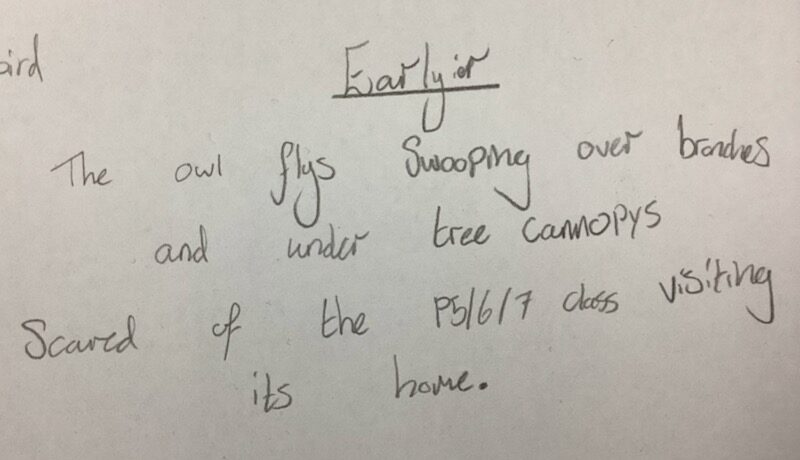 bird
Earlyier
The owl flys Swooping over branches
and under tree cannopys
Scared of the P5/6/7 class visiting
its home.